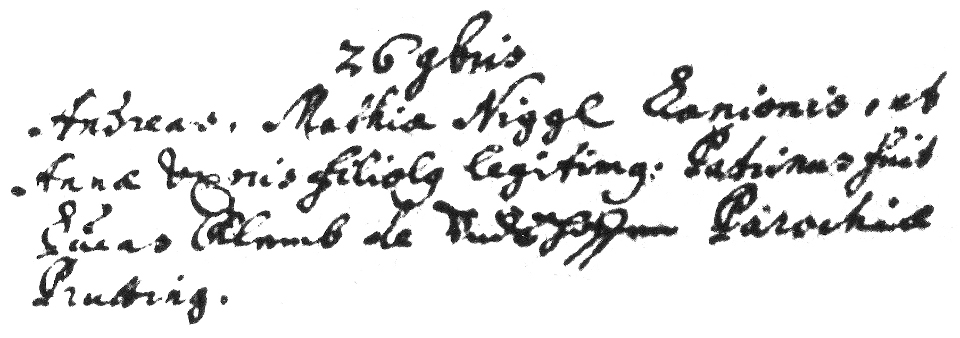 26 9bris
Andreas, Mathiæ Niggl Lanionis, et
Annæ Uxoris filiolg legitimg: Patrinus fuit
Lucas Klamb de Parochiæ
Prutting.